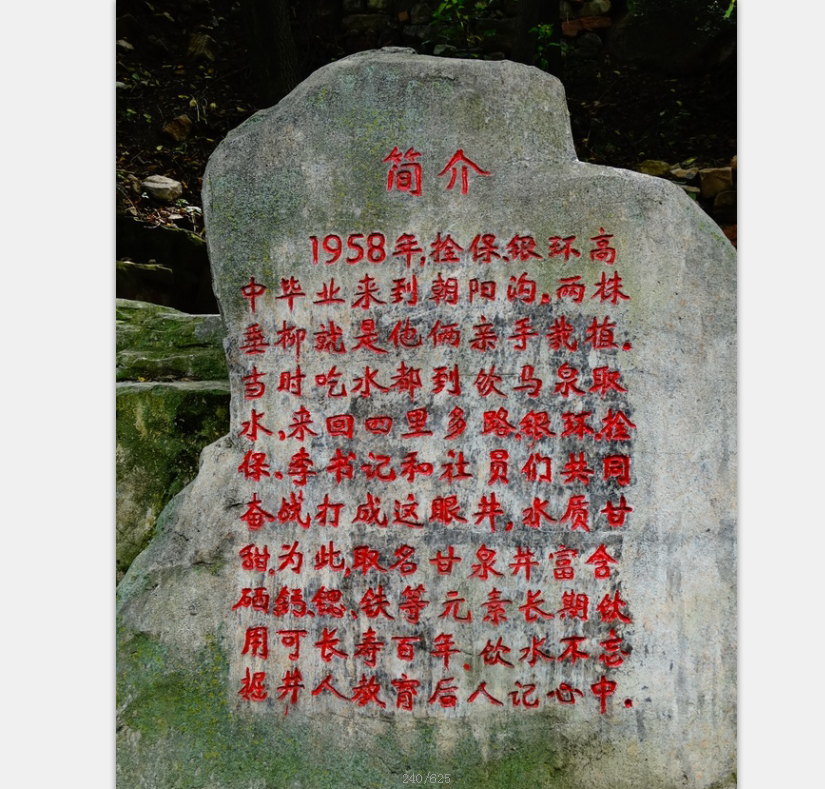 简介
1958年,拴保、银环高
中毕业来到朝阳沟。两株
垂柳就是他俩亲手栽植.
当时吃水都到饮马泉取
水,来回四里多路.银环.拴
保.李书记和社员们共同
奋战打成这眼井,水质甘
甜.为此,取名甘泉井富含
硒.钙.锶.铁等元素长期饮
用可长寿百年.饮水不忘
掘井人教育后人记心中.
240/625